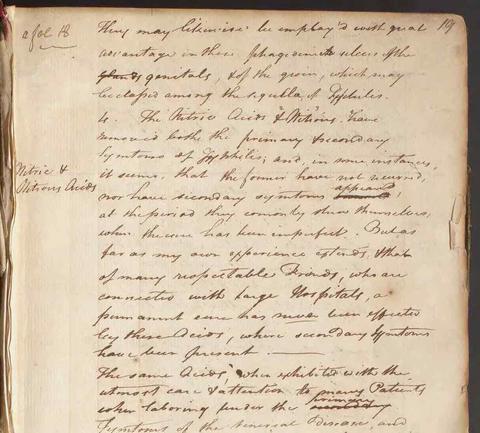 a fol 18
19
They may likewise be employ'd with great
advantage in those phagedenic ulcers of the
glands genitals, & of the groin, which may
be classed among the sequilla of Syphilis.
4. The Nitric Acids & Nitrous, have
removed both the primary & secondary
Symtoms of Syphilis; and, in some instances,
it seems, that the former have not recurred,
nor have secondary symtoms appeared
at the period they comonly shew themselves,
when the cure has been imperfect. But as
far as my own experience extends, & that
of many respectable Friends, who are
connected with large Hospitals, a
permanent cure has never been effected
by these Acids, where secondary Symtoms
have been present.
Nitric &
Nitrous Acids
The same Acids, when exhibited with the
utmost care & attention to many Patients
when laboring under the primary secondary
Symtoms of the venereal Disease, and